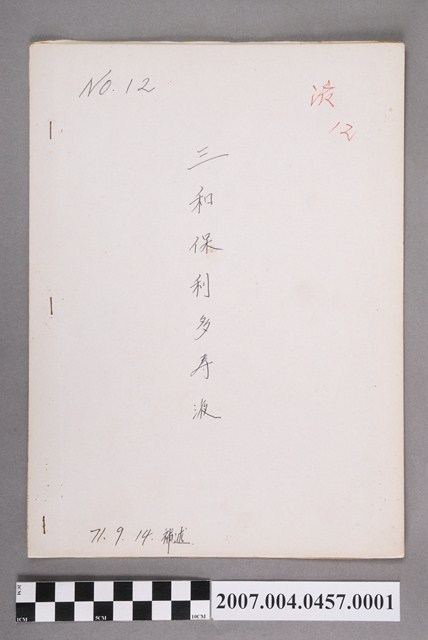 NO. 12
液
12
三和保利多寿液
71. 9. 14. 補述
2007.004.0457.0001
1CM
5CM
10CM